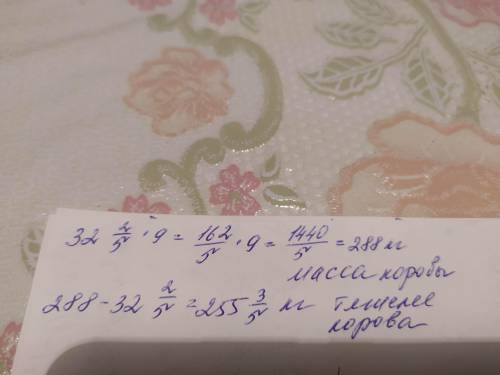 32 2/5 · 9 = 162/5 · 9 = 1440/5 = 288 кг
масса коровы
288 - 32 2/5 = 255 3/5 кг тяжелее
корова